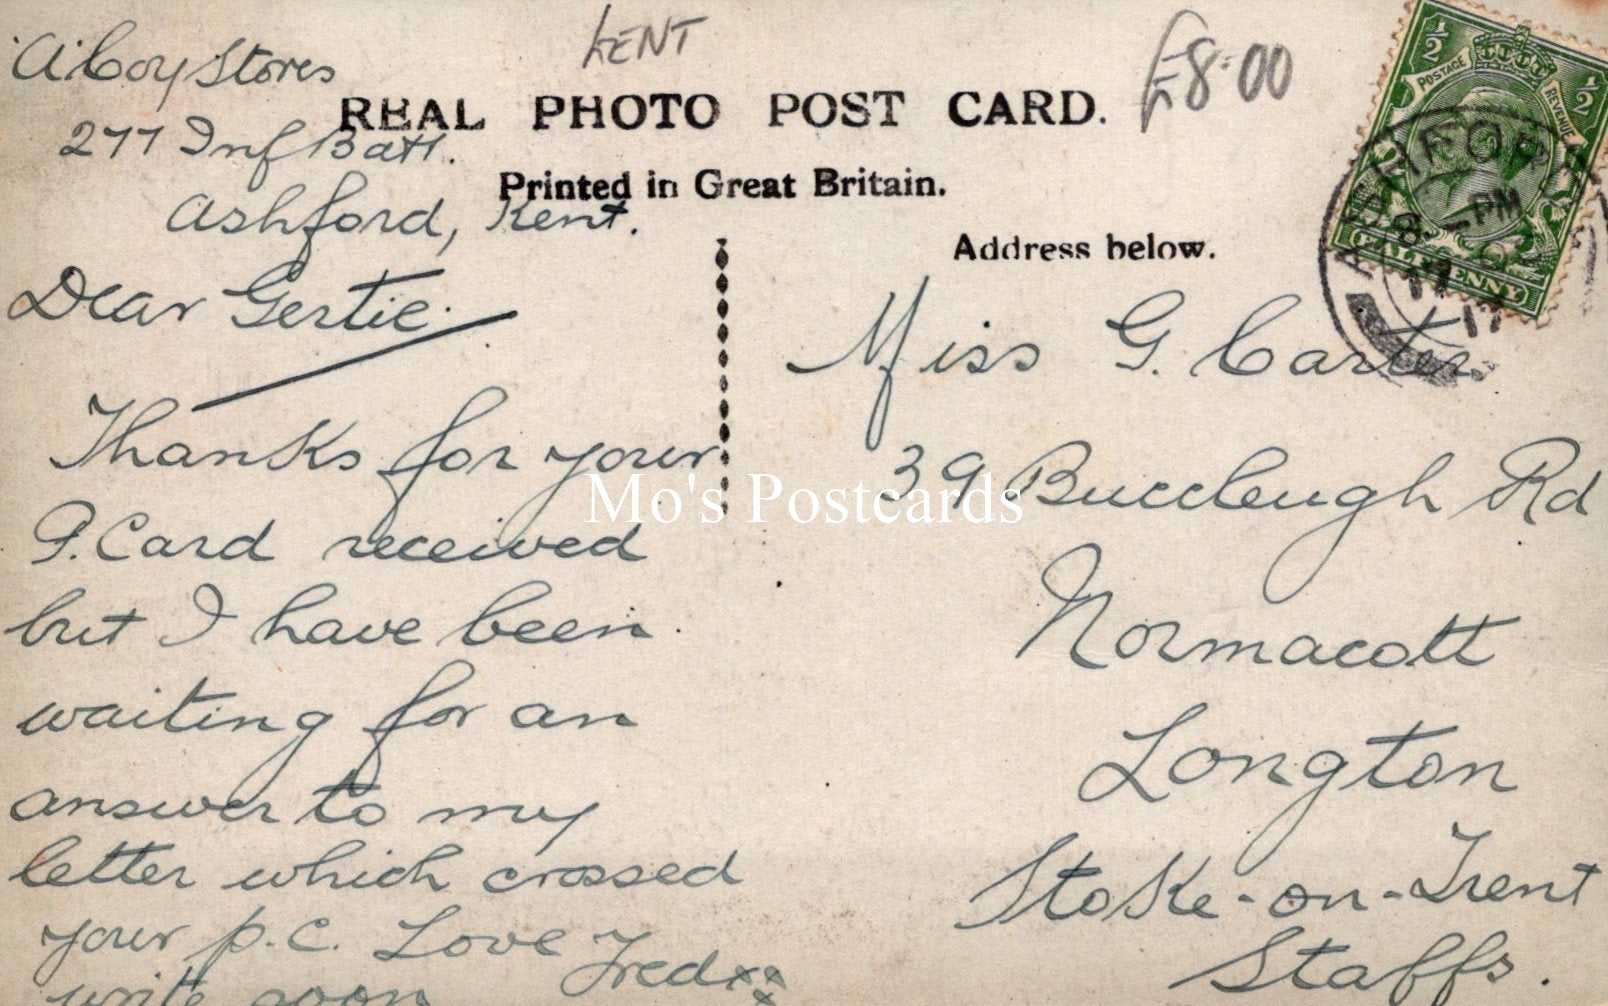 KENT
£8.00
A Coy Stores
277 Inf Batt.
Ashford, Kent.
REAL PHOTO POST CARD.
Printed in Great Britain.
Address below.
Dear Gertie.
Thanks for your
P. Card received
but I have been
waiting for an
answer to my
letter which crossed
your p.c. Love
Fred xx
x
write soon
Miss G. Carter
39 Buccleugh Rd
Normacott
Longton
Stoke-on-Trent
Staffs.
Mo's Postcards
1/2 1/2
POSTAGE REVENUE
HALFPENNY
ASHFORD
8. PM
17